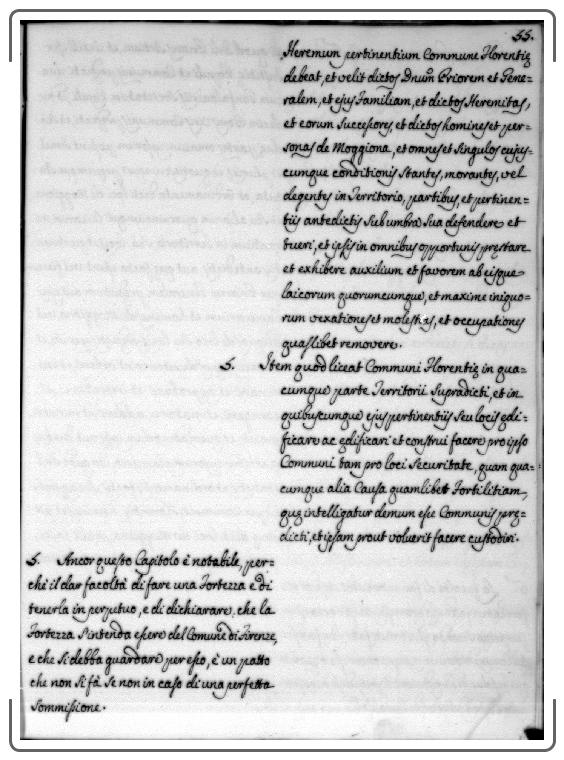 55.
Heremum pertinentium Commune Florentię
debeat, et velit dictos Dnum Priorem et Gene=
ralem, et ejus Familiam, et dictos Heremitas,
et eorum Successores, et dictos homines et per=
sonas de Moggiona, et omnes et singulos cujus=
cumque conditionis stantes, morantes, vel
degentes in Territorio, partibus, et pertinen=
tiis antedictis sub umbra sua defendere et
tueri, et ipsis in omnibus opportunis pręstare
et exhibere auxilium et favorem ab eisque
laicorum quorumcumque, et maxime iniquo=
rum vexationes et molestias, et occupationes
quaslibet removere.
5. Item quod liceat Communi Florentię in qua=
cumque parte Territorii supradicti, et in
quibuscumque ejus pertinentiis seu locis ędi=
ficare ac ędificari et construi facere pro ipso
Communi tam pro loci securitate, quam qua=
cumque alia Causa quamlibet Fortilitiam,
quę intelligatur demum esse Communis prę=
dicti, et ipsam prout voluerit facere custodiri.
5. Ancor questo Capitolo è notabile, per=
chè il dar facoltà di fare una Fortezza e di
tenerla in perpetuo, e di dichiarare, che la
Fortezza s'intenda essere del Comune di Firenze,
e che si debba guardare per esso, è un patto
che non si fà se non in caso di una perfetta
sommissione.